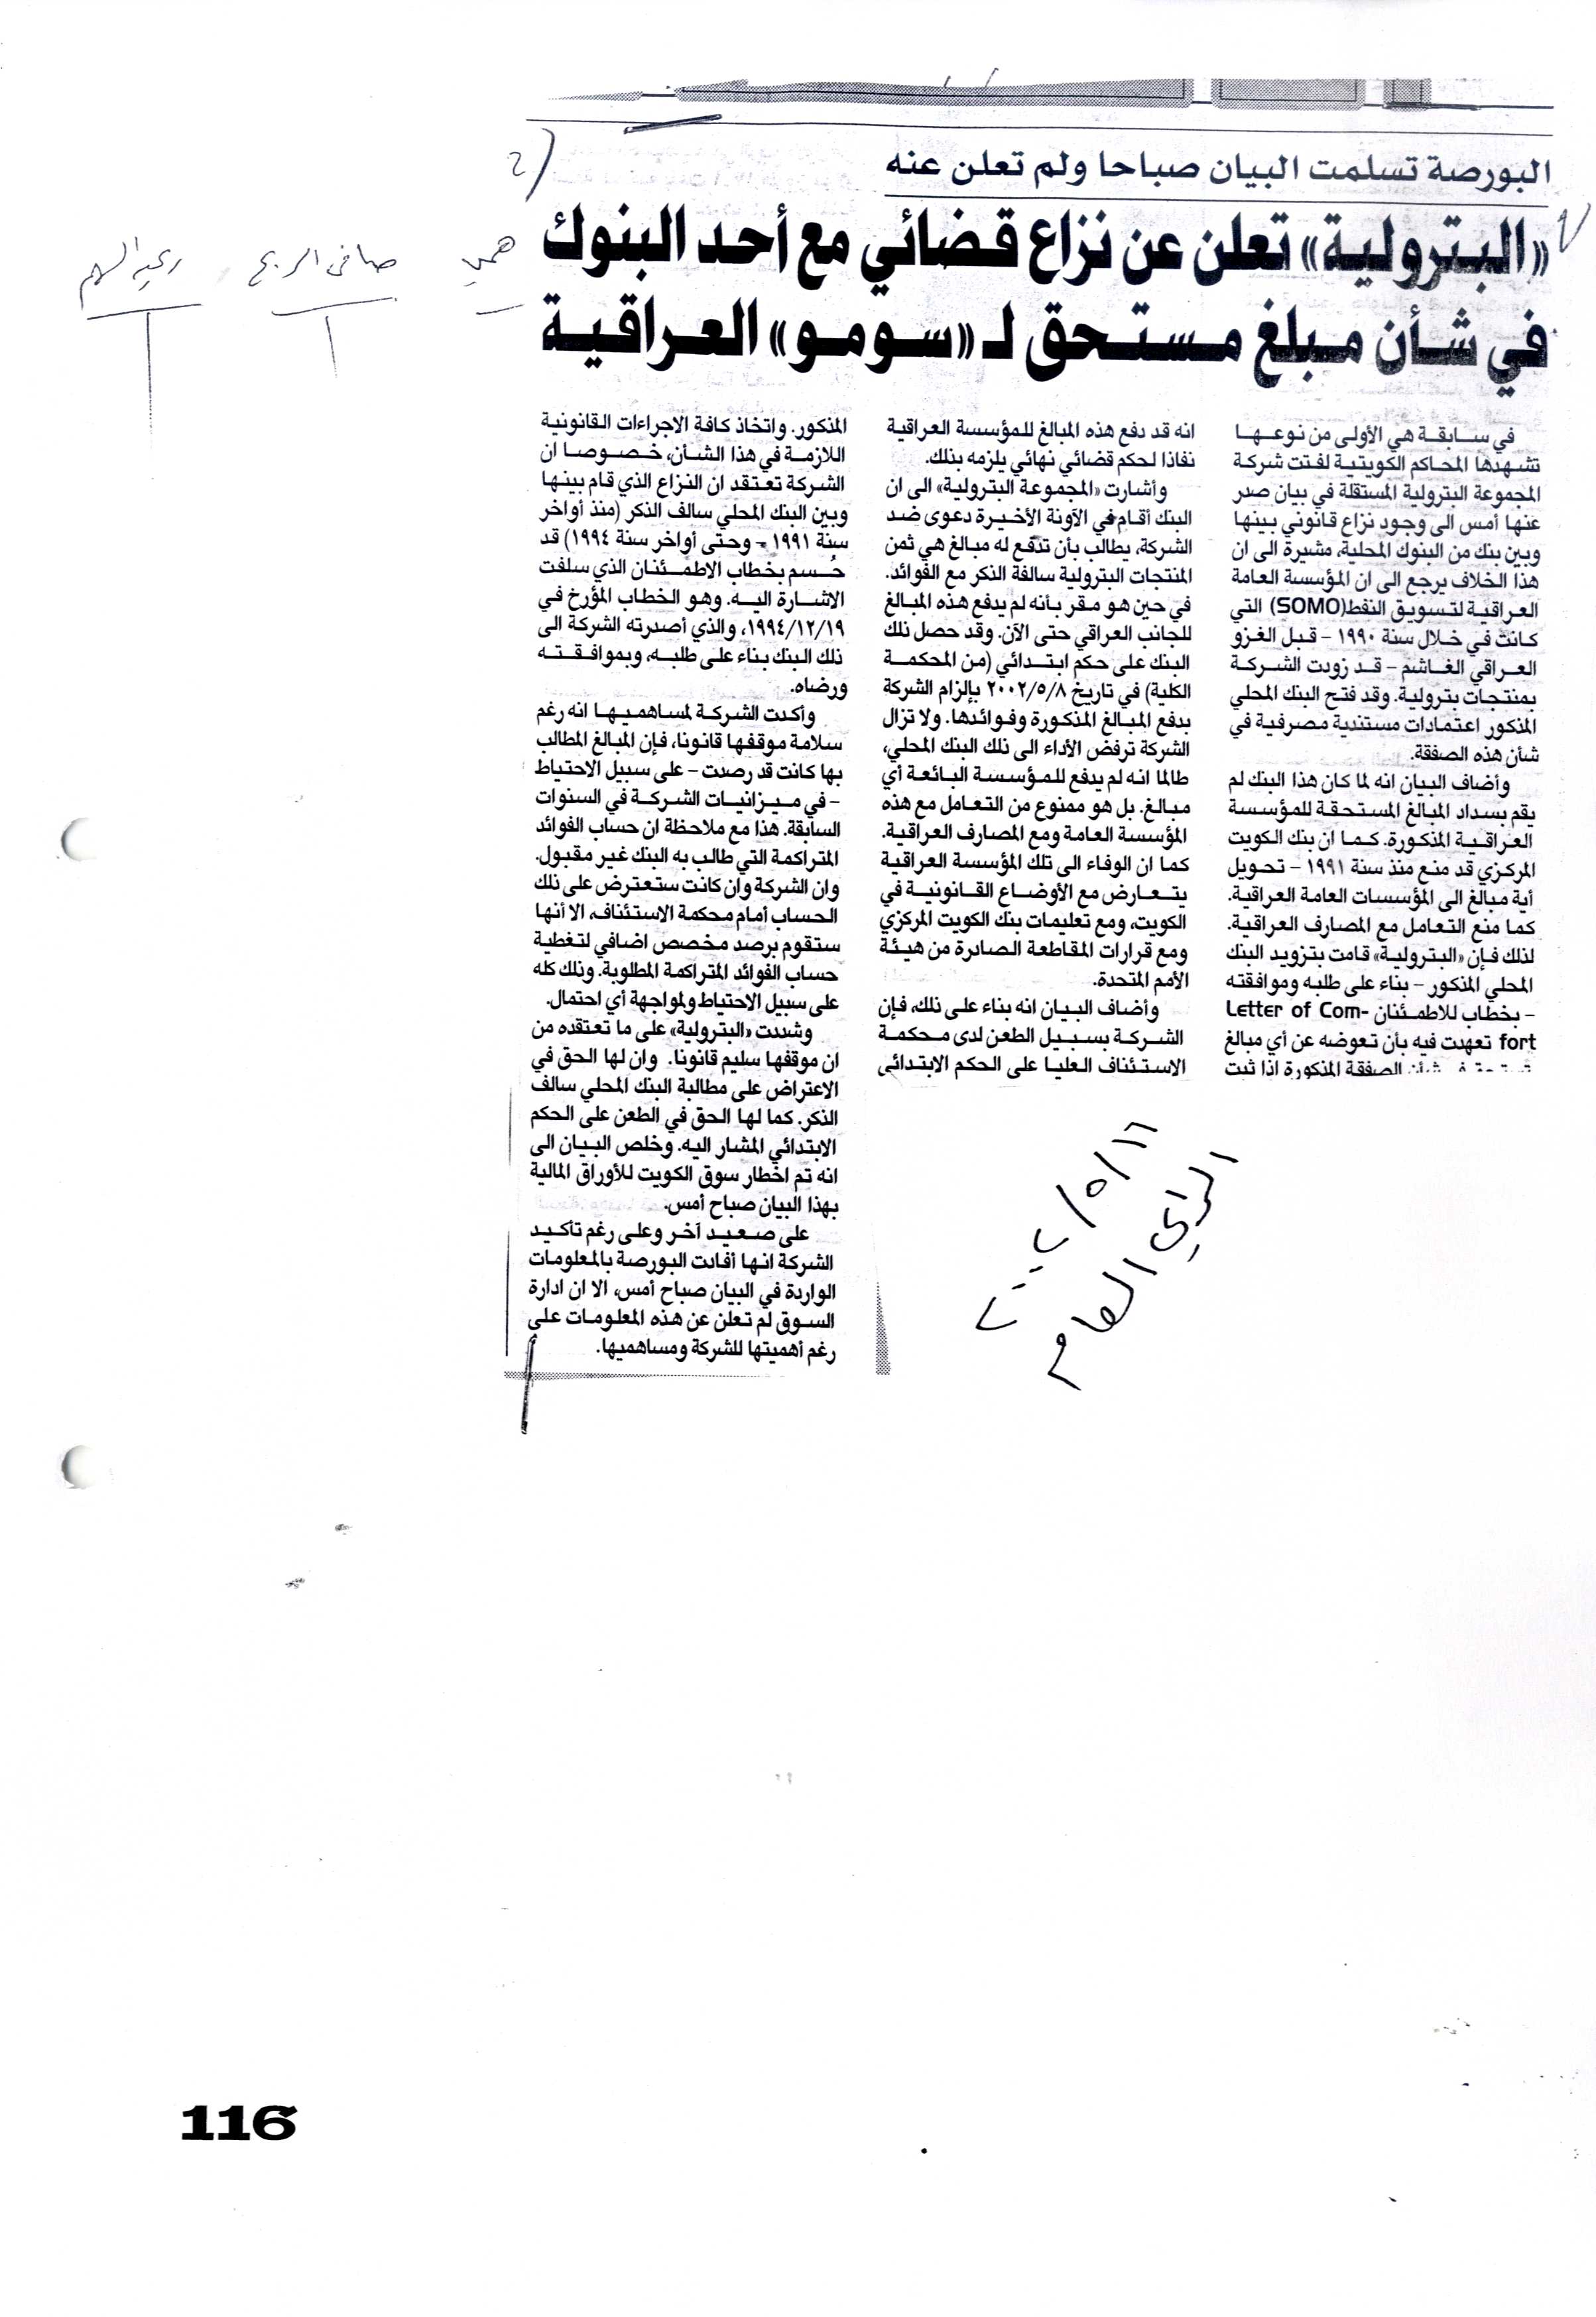 البورصة تسلمت البيان صباحا ولم تعلن عنه
«البترولية» تعلن عن نزاع قضائي مع أحد البنوك
في شأن مبلغ مستحق لـ «سومو» العراقية
في سابقة هي الأولى من نوعها
تشهدها المحاكم الكويتية لفتت شركة
المجموعة البترولية المستقلة في بيان صدر
عنها أمس الى وجود نزاع قانوني بينها
وبين بنك من البنوك المحلية، مشيرة الى ان
هذا الخلاف يرجع الى ان المؤسسة العامة
العراقية لتسويق النفط(SOMO) التي
كانت في خلال سنة ١٩٩٠ - قبل الغزو
العراقي الغاشم - قد زودت الشركة
بمنتجات بترولية. وقد فتح البنك المحلي
المذكور اعتمادات مستندية مصرفية في
شأن هذه الصفقة.
وأضاف البيان انه لما كان هذا البنك لم
يقم بسداد المبالغ المستحقة للمؤسسة
العراقية المذكورة. كما ان بنك الكويت
المركزي قد منع منذ سنة ١٩٩١ - تحويل
أية مبالغ الى المؤسسات العامة العراقية.
كما منع التعامل مع المصارف العراقية.
لذلك فإن «البترولية» قامت بتزويد البنك
المحلي المذكور - بناء على طلبه وموافقته
- بخطاب للاطمئنان Letter of Com-
fort تعهدت فيه بأن تعوضه عن أي مبالغ
شأن الصفقة المذكورة اذا ثبت
انه قد دفع هذه المبالغ للمؤسسة العراقية
نفاذا لحكم قضائي نهائي يلزمه بذلك.
وأشارت «المجموعة البترولية» الى ان
البنك أقام في الآونة الأخيرة دعوى ضد
الشركة، يطالب بأن تدفع له مبالغ هي ثمن
المنتجات البترولية سالفة الذكر مع الفوائد.
في حين هو مقر بأنه لم يدفع هذه المبالغ
للجانب العراقي حتى الآن. وقد حصل ذلك
البنك على حكم ابتدائي (من المحكمة
الكلية) في تاريخ ٢٠٠٢/٥/٨ بإلزام الشركة
بدفع المبالغ المذكورة وفوائدها. ولا تزال
الشركة ترفض الأداء الى ذلك البنك المحلي،
طالما انه لم يدفع للمؤسسة البائعة أي
مبالغ. بل هو ممنوع من التعامل مع هذه
المؤسسة العامة ومع المصارف العراقية.
كما ان الوفاء الى تلك المؤسسة العراقية
يتعارض مع الأوضاع القانونية في
الكويت، ومع تعليمات بنك الكويت المركزي
ومع قرارات المقاطعة الصادرة من هيئة
الأمم المتحدة.
وأضاف البيان انه بناء على ذلك، فإن
الشركة بسبيل الطعن لدى محكمة
الاستئناف العليا على الحكم الابتدائي
المذكور. واتخاذ كافة الاجراءات القانونية
اللازمة في هذا الشأن، خصوصا ان
الشركة تعتقد ان النزاع الذي قام بينها
وبين البنك المحلي سالف الذكر (منذ أواخر
سنة ١٩٩١ - وحتى أواخر سنة ١٩٩٤) قد
حُسم بخطاب الاطمئنان الذي سلفت
الاشارة اليه. وهو الخطاب المؤرخ في
١٩٩٤/١٢/١٩، والذي أصدرته الشركة الى
ذلك البنك بناء على طلبه، وبموافقته
ورضاه.
وأكدت الشركة لمساهميها انه رغم
سلامة موقفها قانونا، فإن المبالغ المطالب
بها كانت قد رصدت - على سبيل الاحتياط
- في ميزانيات الشركة في السنوات
السابقة. هذا مع ملاحظة ان حساب الفوائد
المتراكمة التي طالب به البنك غير مقبول.
وان الشركة وان كانت ستعترض على ذلك
الحساب أمام محكمة الاستئناف، الا أنها
ستقوم برصد مخصص اضافي لتغطية
حساب الفوائد المتراكمة المطلوبة. وذلك كله
على سبيل الاحتياط ولمواجهة أي احتمال.
وشددت «البترولية» على ما تعتقده من
ان موقفها سليم قانونا. وان لها الحق في
الاعتراض على مطالبة البنك المحلي سالف
الذكر. كما لها الحق في الطعن على الحكم
الابتدائي المشار اليه. وخلص البيان الى
انه تم اخطار سوق الكويت للأوراق المالية
بهذا البيان صباح أمس.
على صعيد آخر وعلى رغم تأكيد
الشركة انها أفادت البورصة بالمعلومات
الواردة في البيان صباح أمس، الا ان ادارة
السوق لم تعلن عن هذه المعلومات على
رغم أهميتها للشركة ومساهميها.
صافي الربح
الراي العام
116